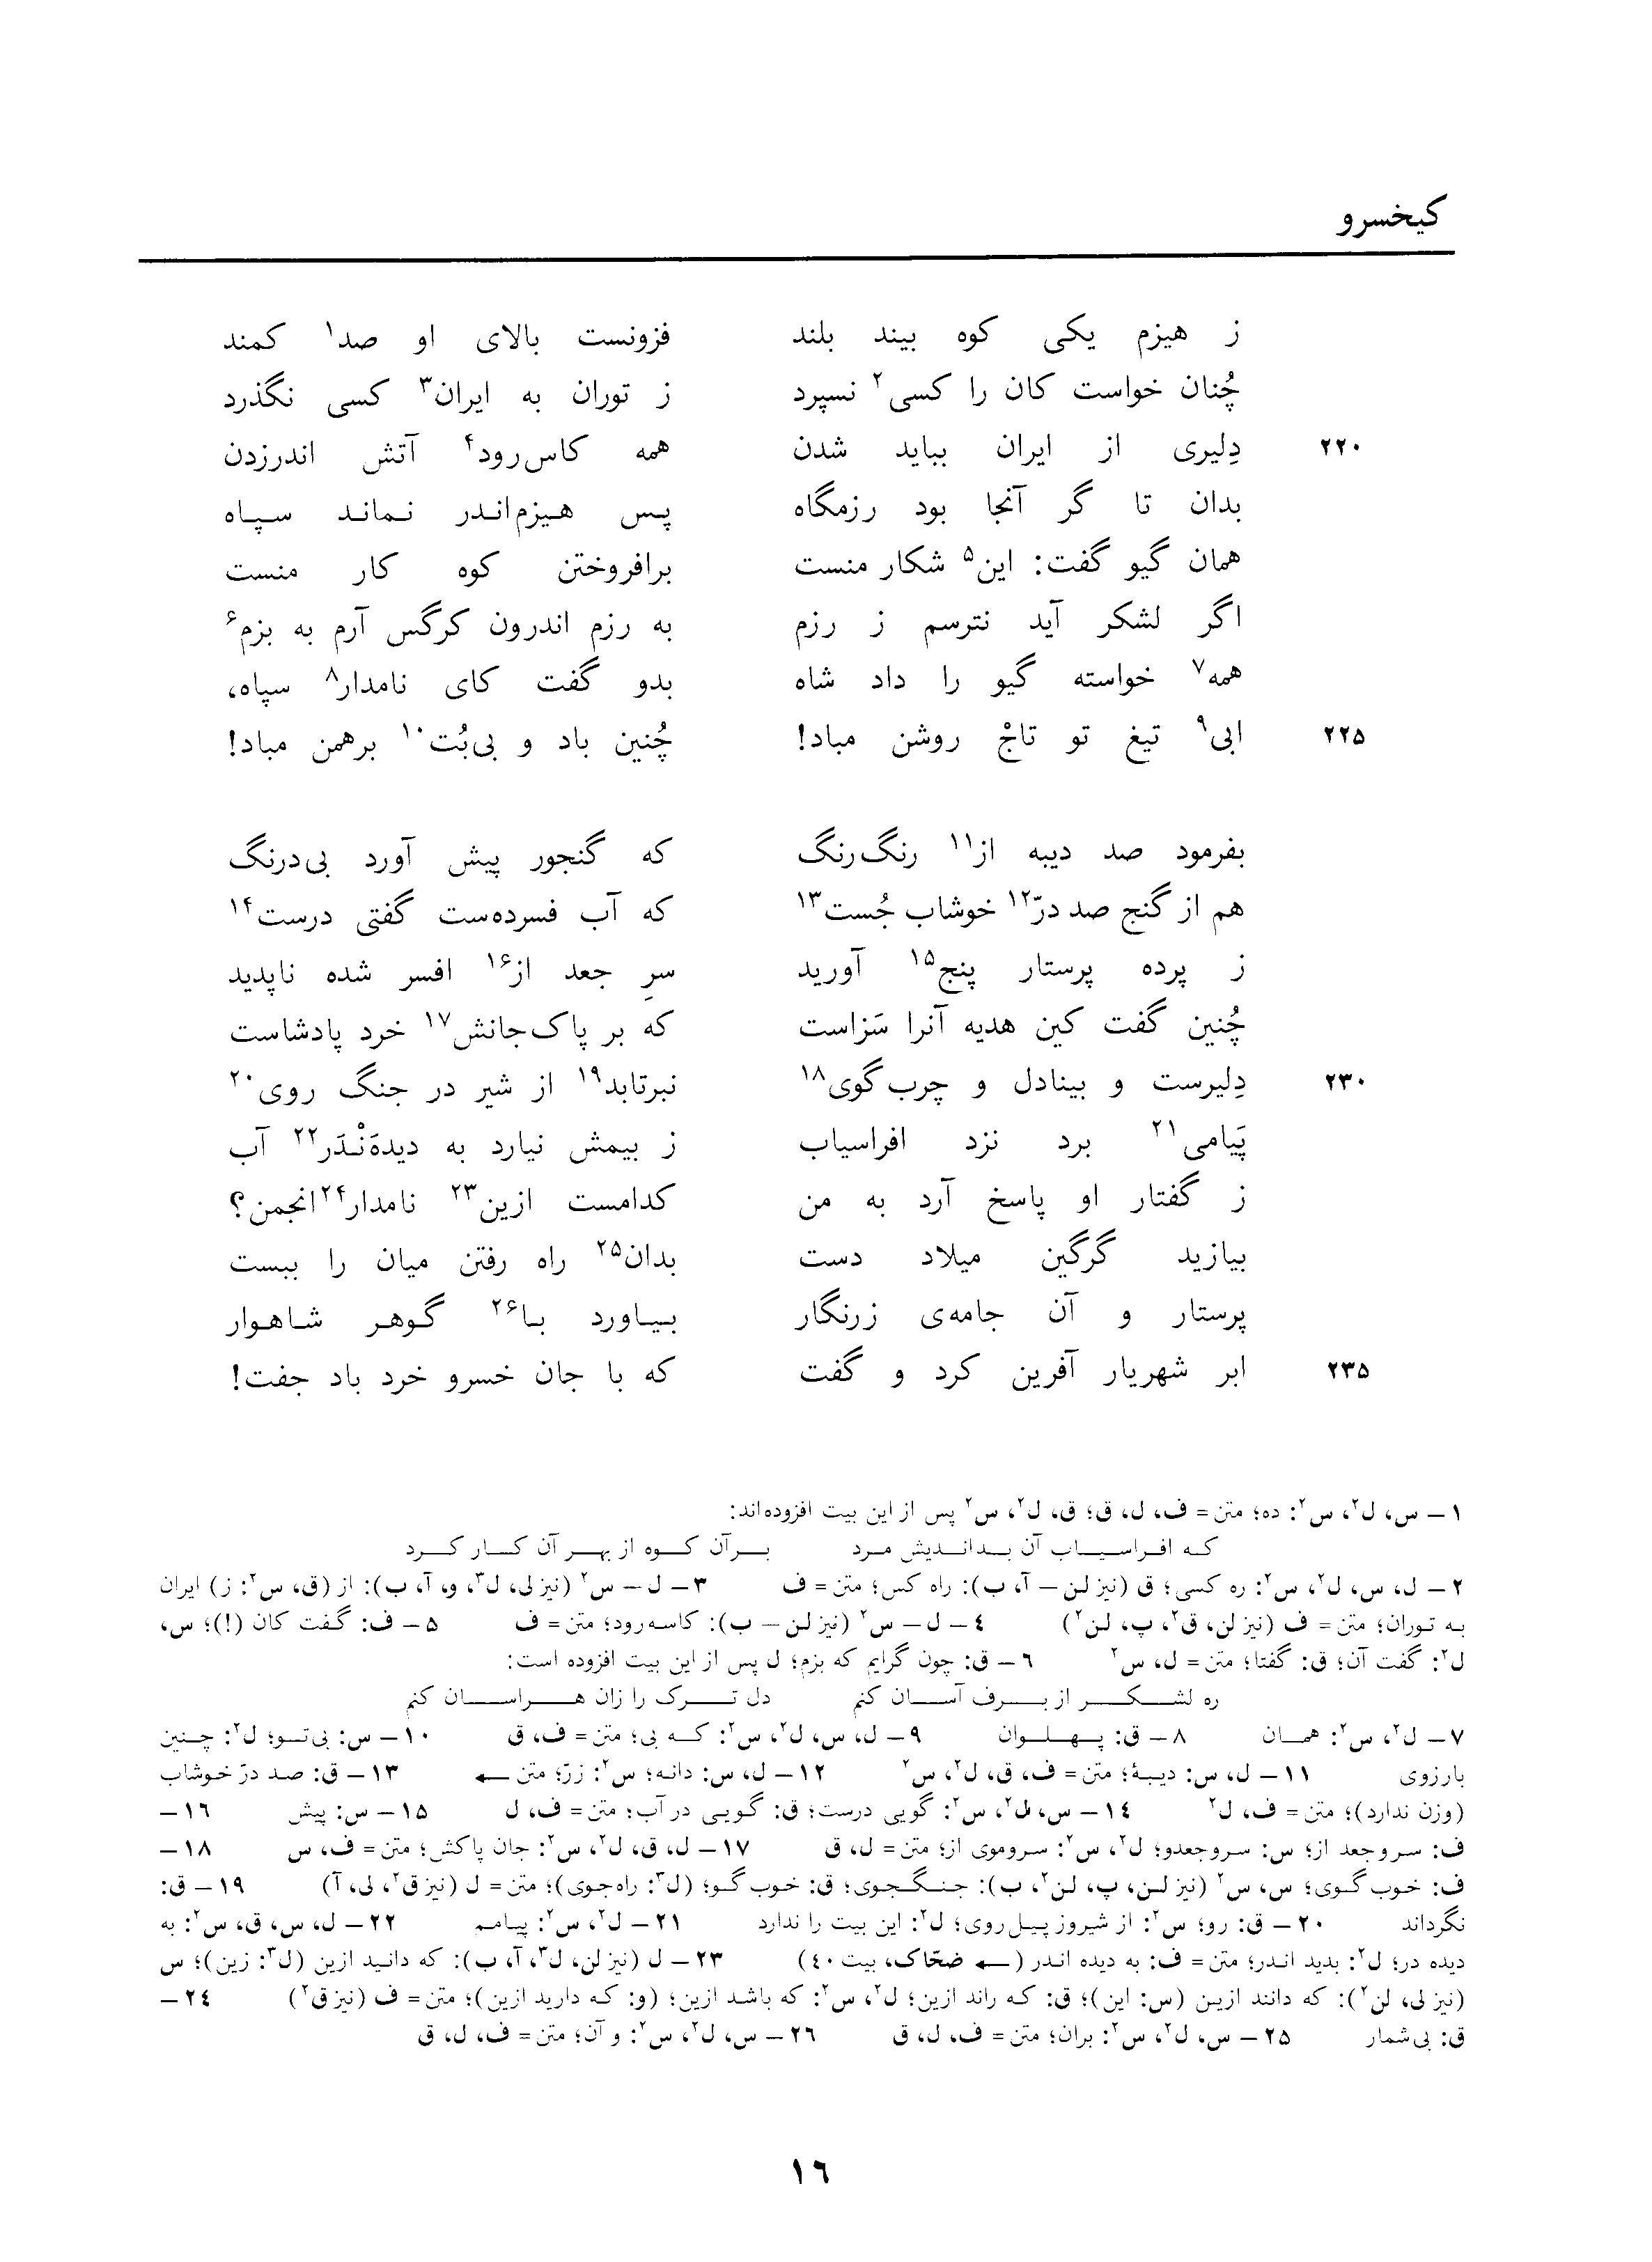 کیخسرو
ز هیزم یکی کوه بیند بلند فزونست بالای او صد۱ کمند
چُنان خواست کان را کسی۲ نسپرد ز توران به ایران۳ کسی نگذرد
۲۲۰ دِلیری از ایران بباید شدن همه کاس‌رود۴ آتش اندرزدن
بدان تا گر آنجا بود رزمگاه پس هیزم‌اندر نماند سپاه
همان گیو گفت: این۵ شکار منست برافروختن کوه کار منست
اگر لشکر آید نترسم ز رزم به رزم اندرون کرگس آرم به بزم۶
همه۷ خواسته گیو را داد شاه بدو گفت کای نامدار۸ سپاه،
۲۲۵ ابی۹ تیغ تو تاجْ روشن مباد! چُنین باد و بی‌بُت۱۰ برهمن مباد!
بفرمود صد دیبه از۱۱ رنگ‌رنگ که گنجور پیش آورد بی‌درنگ
هم از گنج صد درّ۱۲ خوشاب جُست۱۳ که آب فسرده‌ست گفتی درست۱۴
ز پرده پرستار پنج۱۵ آورید سرِ جعد از۱۶ افسر شده ناپدید
چُنین گفت کین هدیه آنرا سَزاست که بر پاک‌جانش۱۷ خرد پادشاست
۲۳۰ دِلیرست و بینادل و چرب‌گوی۱۸ نبرتابد۱۹ از شیر در جنگ روی۲۰
پَیامی۲۱ برد نزد افراسیاب ز بیمش نیارد به دیدهَ‌نْدَر۲۲ آب
ز گفتار او پاسخ آرد به من کدامست ازین۲۳ نامدار۲۴انجمن؟
بیازید گرگین میلاد دست بدان۲۵ راه رفتن میان را ببست
پرستار و آن جامه‌ی زرنگار بیاورد با۲۶ گوهر شاهوار
۲۳۵ ابر شهریار آفرین کرد و گفت که با جان خسرو خرد باد جفت!
۱ – س، ل۲، س۲: ده؛ متن = ف، ل، ق؛ ق، ل۲، س۲ پس از این بیت افزوده‌اند:
که افراسیاب آن بداندیش مرد برآن کوه از بهر آن کار کرد
۲ – ل، س، ل۲، س۲: ره کسی؛ ق (نیز لن – آ، ب): راه کس؛ متن = ف ۳ – ل – س۲ (نیز لی، ل۳، و، آ، ب): از (ق، س۲: ز) ایران
به توران؛ متن = ف (نیز لن، ق۲، پ، لن۲) ٤ – ل – س۲ (نیز لن – ب): کاسه‌رود؛ متن = ف ۵ – ف: گفت کان (!)؛ س،
ل۲: گفت آن؛ ق: گفتا؛ متن = ل، س۲ ٦ – ق: چون گرایم که بزم؛ ل پس از این بیت افزوده است:
ره لشکر از برف آسان کنم دل ترک را زان هراسان کنم
۷ – ل۲، س۲: همان ۸ – ق: پهلوان ۹ – ل، س، ل۲، س۲: که بی؛ متن = ف، ق ۱۰ – س: بی‌تو؛ ل۲: چنین
بارزوی ۱۱ – ل، س: دیبهٔ؛ متن = ف، ق، ل۲، س۲ ۱۲ – ل، س: دانه؛ س۲: زرّ؛ متن ← ۱۳ – ق: صد درّ خوشاب
(وزن ندارد)؛ متن = ف، ل۲ ۱٤ – س، ل۲، س۲: گویی درست؛ ق: گویی در آب؛ متن = ف، ل ۱۵ – س: پیش ۱٦ –
ف: سر و جعد از؛ س: سروجعدو؛ ل۲، س۲: سروموی از؛ متن = ل، ق ۱۷ – ل، ق، ل۲، س۲: جان پاکش؛ متن = ف، س ۱۸ –
ف: خوب‌گوی؛ س، س۲ (نیز لن، پ، لن۲، ب): جنگجوی؛ ق: خوب‌گو؛ (ل۳: راه‌جوی)؛ متن = ل (نیز ق۲، لی، آ) ۱۹ – ق:
نگرداند ۲۰ – ق: رو؛ س۲: از شیروز پیل روی؛ ل۲: این بیت را ندارد ۲۱ – ل۲، س۲: پیامم ۲۲ – ل، س، ق، س۲: به
دیده در؛ ل۲: بدید اندر؛ متن = ف: به دیده اندر (← ضحّاک، بیت ٤۰) ۲۳ – ل (نیز لن، ل۳، آ، ب): که دانید ازین (ل۳: زین)؛ س
(نیز لی، لن۲): که دانند ازین (س: این)؛ ق: که راند ازین؛ ل۲، س۲: که باشد ازین؛ (و: که دارید ازین)؛ متن = ف (نیز ق۲) ۲٤ –
ق: بی‌شمار ۲۵ – س، ل۲، س۲: بران؛ متن = ف، ل، ق ۲٦ – س، ل۲، س۲: و آن؛ متن = ف، ل، ق
۱٦